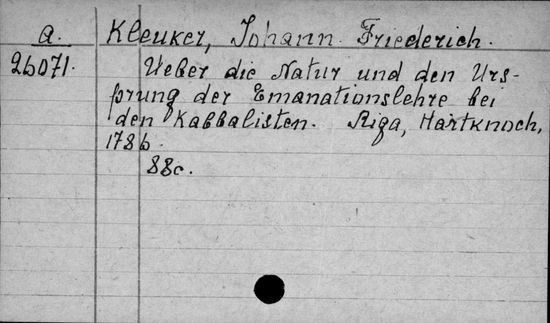 a. Kleuker, Johann Friederich.
26071. Ueber die Natur und den Urs-
prung der Emanationslehre bei
den Kabbalisten. Riga, Hartknoch,
1786.
88c.